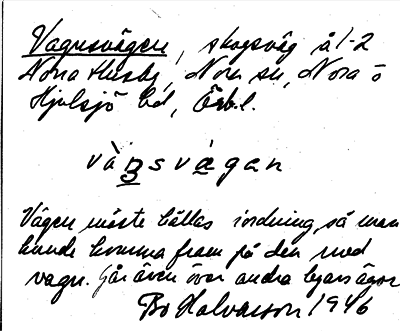 Vagnsvägen, skogsväg å 1-2
Norra Hyttby, Nora sn, Nora ö
Hjulsjö bd, Örb.l.
vàn̲svágan
Vägen måste hållas i ordning, så man
kunde komma fram på den med
vagn. Går även över andra byars ägor
Bo Halvarson 1946